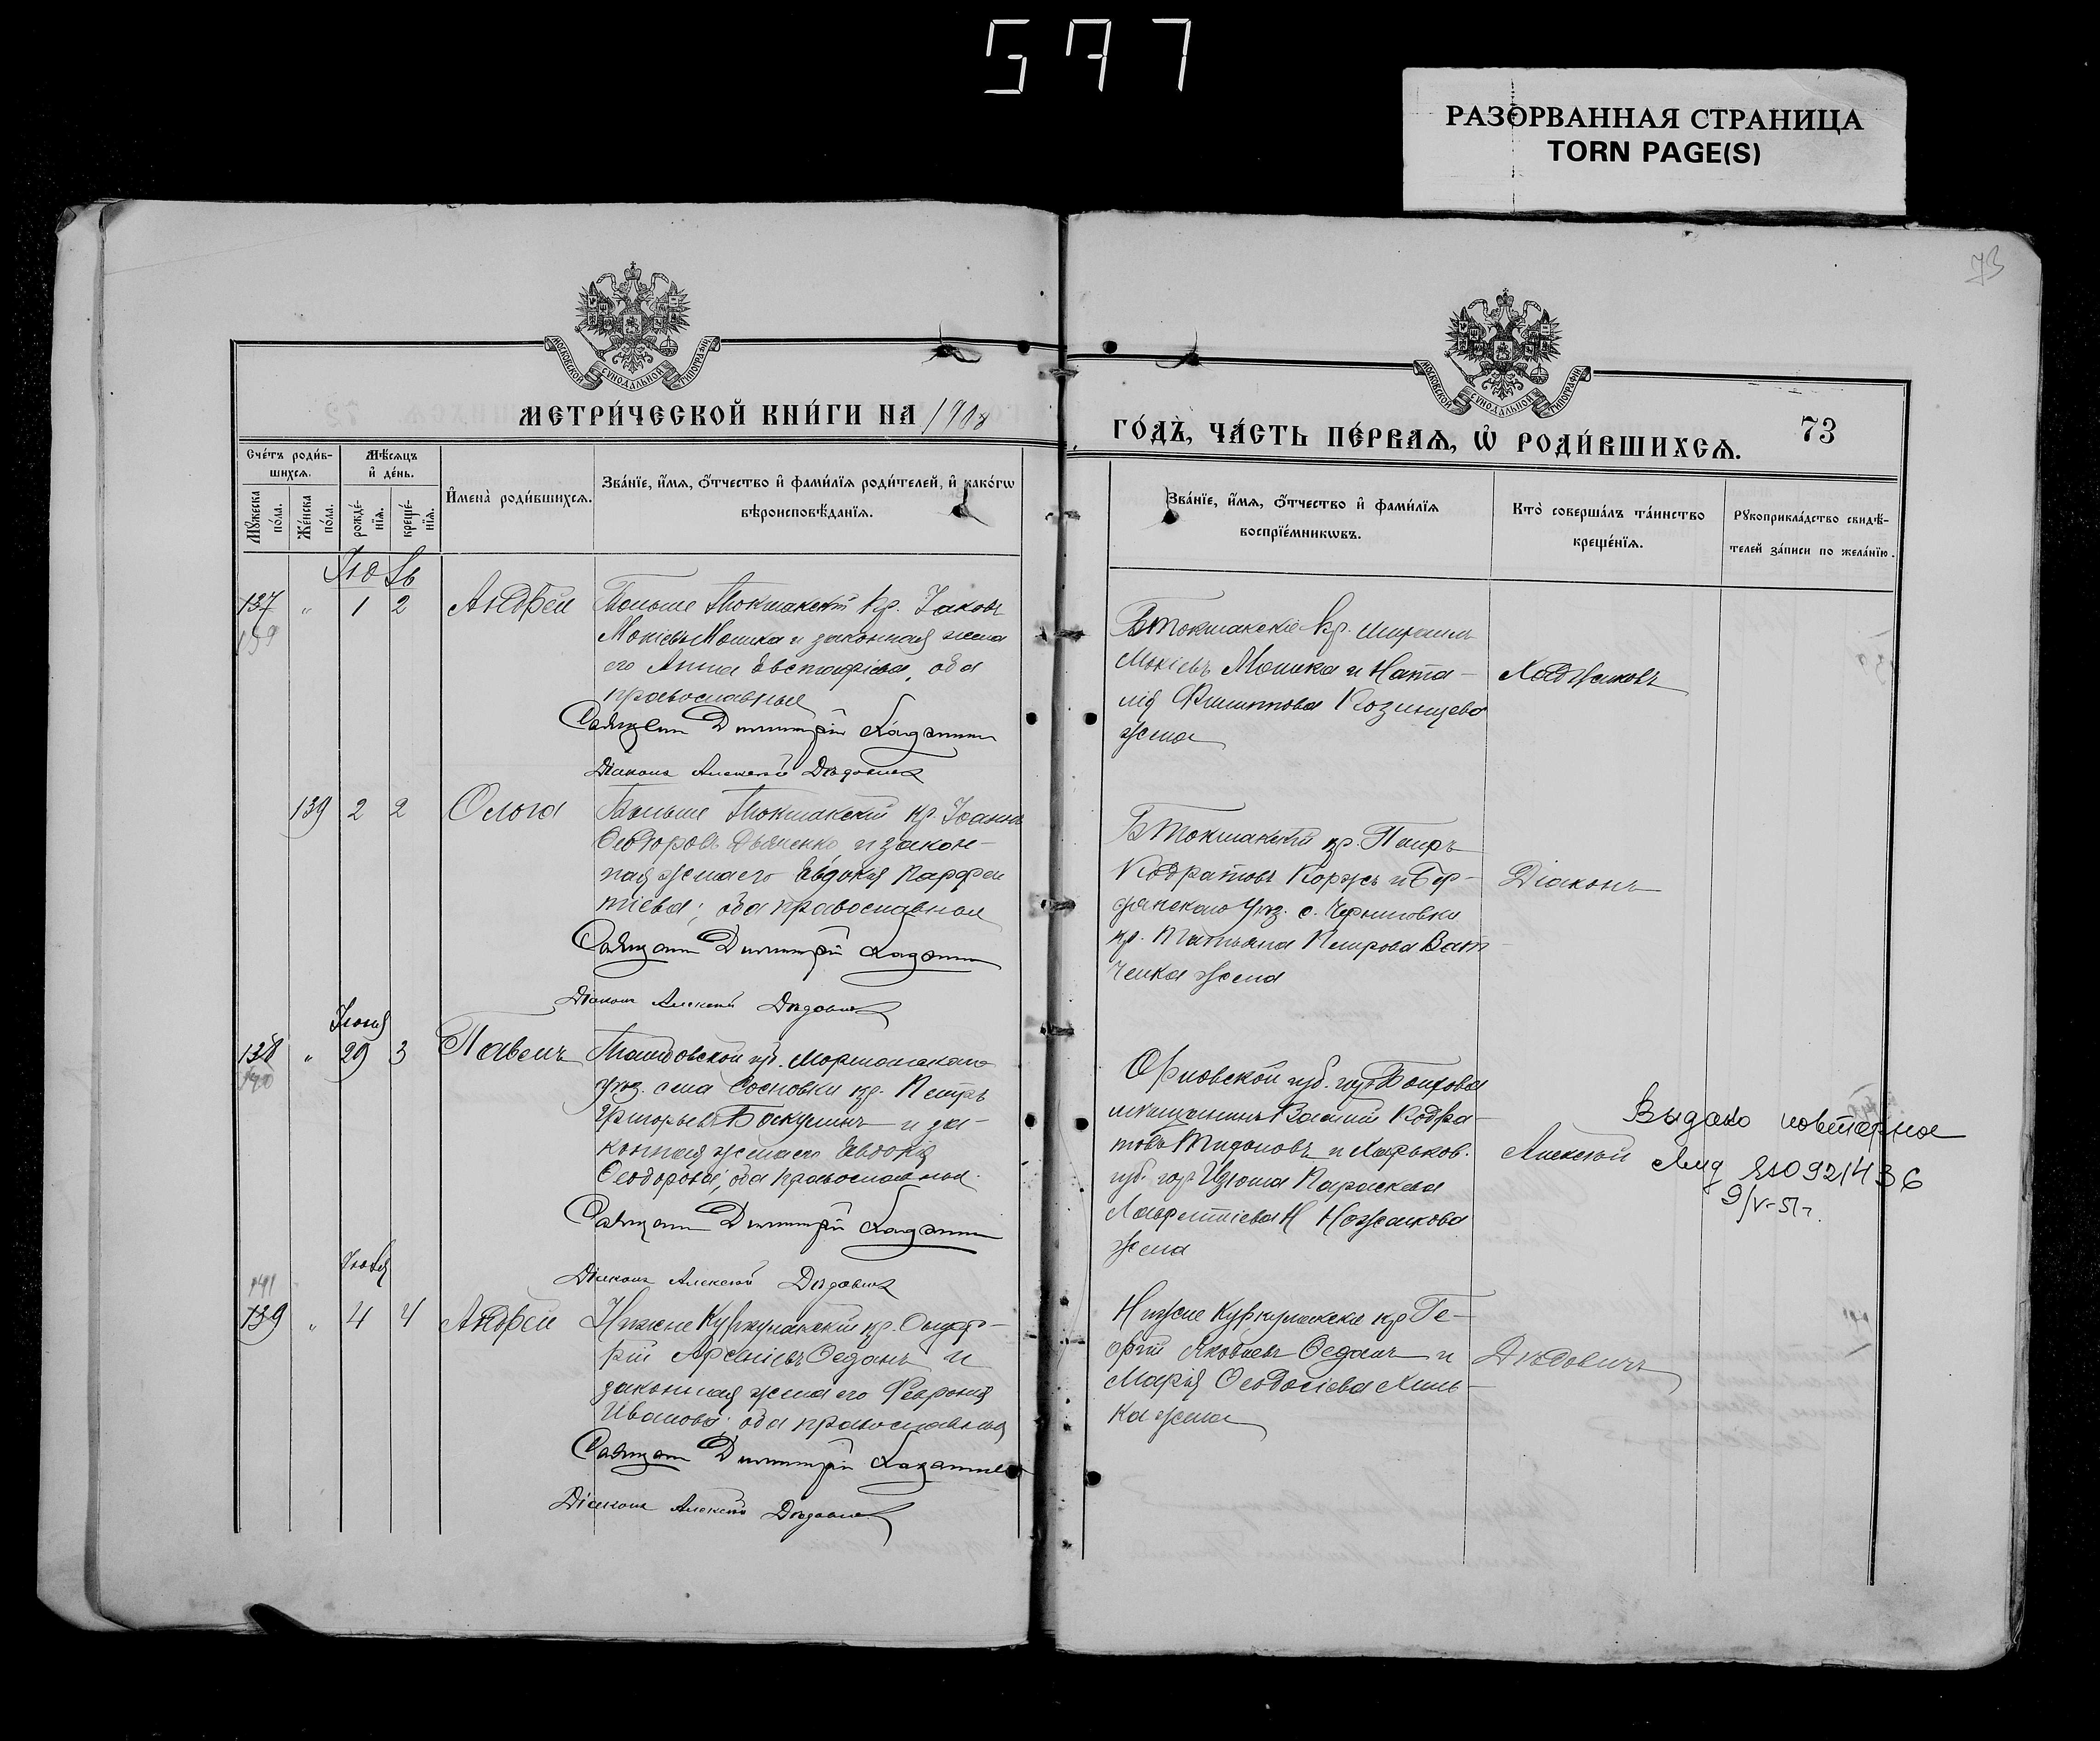 597
РАЗОРВАННАЯ СТРАНИЦА
TORN PAGE(S)
73
МОСКОВСКОЙ СѴНОДАЛЬНОЙ ТИПОГРАФІИ
МОСКОВСКОЙ СѴНОДАЛЬНОЙ ТИПОГРАФІИ
МЕТРИ́ЧЕСКОЙ КНИ́ГИ НА 1908
ГО́ДЪ, ЧА́СТЬ ПЕ́РВАѦ, Ѡ҆ РОДИ́ВШИХСѦ.
73
Сче́тъ роди́в-
шихсѧ.
Мꙋ́жеска по́ла.
Же́нска по́ла.
Мѣ́сѧцъ
и҆ де́нь.
рожде́-
нїѧ.
креще́-
нїѧ.
И҆мена̀ роди́вшихсѧ.
Зва́нїе, и҆́мѧ, ѻ҆́тчество и҆ фами́лїѧ роди́телей, и҆ како́гѡ
вѣроисповѣ́данїѧ.
Зва́нїе, и҆́мѧ, ѻ҆́тчество и҆ фами́лїѧ
воспрїе́мникѡвъ.
Кто̀ соверша́лъ та́инство
креще́нїѧ.
Рꙋкоприкла́дство свидѣ́-
телей за́писи по жела́нїю.
Іюль
137 " 1 2 Андрей
Больше Токмакскій кр. Іаковъ
Мокіевъ Мошка и законная жена
его Анна Евстафіева, оба
православные
Священ Димитрій
Діаконъ Алексѣй Дѣдовичъ
БТокмакскіе кр.
Мокіевъ Мошка и Ната-
лія Филиппова Козинцева
жена
139 2 2 Ольга
Больше Токмакскій кр. Іоаннъ
Ѳеодоровъ Дьяченко и закон-
ная жена его Евдокія Парфен
тіева; оба православные
Священ Димитрій
Діаконъ Алексѣй Дѣдовичъ
БТокмакскій кр. Петръ
Кодратовъ Коржъ и Бер-
дянскаго уѣз. с. Черниговки
кр. Татьяна Петрова Ват
ченка жена
Діаконъ
Іюня
138 " 29 3 Павелъ
Тамбовской губ. Моршанскаго
уѣз. села Сосновки кр. Петръ
Григорьевъ Бакулинъ и за-
конная жена его Евдокія
Ѳеодорова, оба православные
Священ Димитрій
Діаконъ Алексѣй Дѣдовичъ
Орловской губ. гор Болхова
мѣщанинъ Василій Кодра-
товъ и Харьков.
губ. гор Изюма Параскева
Лаврентіева
жена
Алексѣй
Выдано повторное
свид 0921436
9/V-51г.
Іюля
141
139 " 4 4 Андрей
Нижне Куркулакскій кр.
Арсеніевъ Оседачъ и
законная жена его Феѵронія
Иванова оба православные
Священ Димитрій
Діаконъ Алексѣй Дѣдовичъ
Нижне Куркулакскіе кр Ге-
оргій Яковлевъ Оседачъ и
Марія Ѳеодосіева
ка жена
Дѣдовичъ